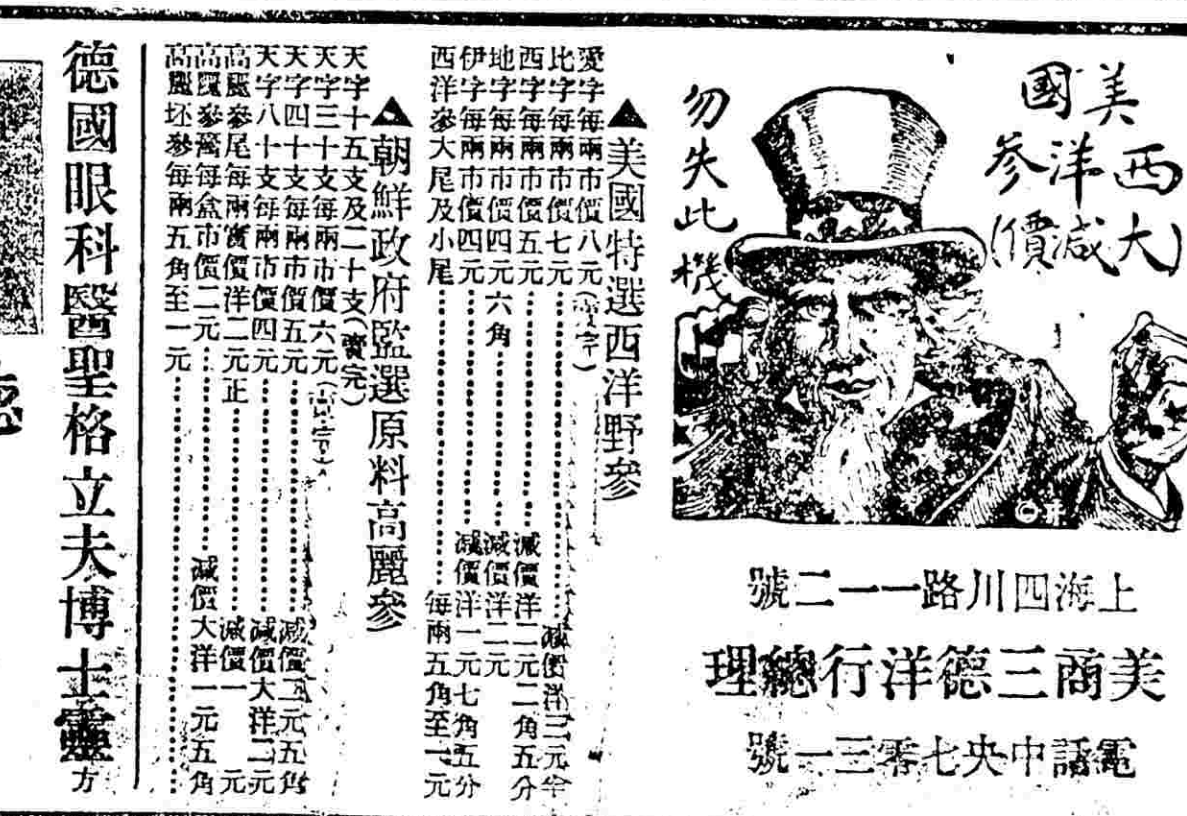 美國
西洋參
(大減價)
勿失此機
上海四川路一一二號
美商三德洋行總理
電話中央七零三一號
▲美國特選西洋野參
愛字每兩市價八元
比字每兩市價七元……減價洋三元半
西字每兩市價五元……減價洋二元二角五分
地字每兩市價四元六角……減價洋二元
伊字每兩市價四元……減價洋一元七角五分
西洋參大尾及小尾……每兩五角至一元
▲朝鮮政府監選原料高麗參
天字十五支及二十支(賣完)
天字三十支每兩市價六元
天字四十支每兩市價五元……減價二元五角
天字八十支每兩市價四元……減價大洋二元
高麗參尾每兩實價洋二元正……減價一元
高麗參鬚每盒市價二元……減價大洋一元五角
高麗坯參每兩五角至一元……
德國眼科醫聖格立夫博士靈方